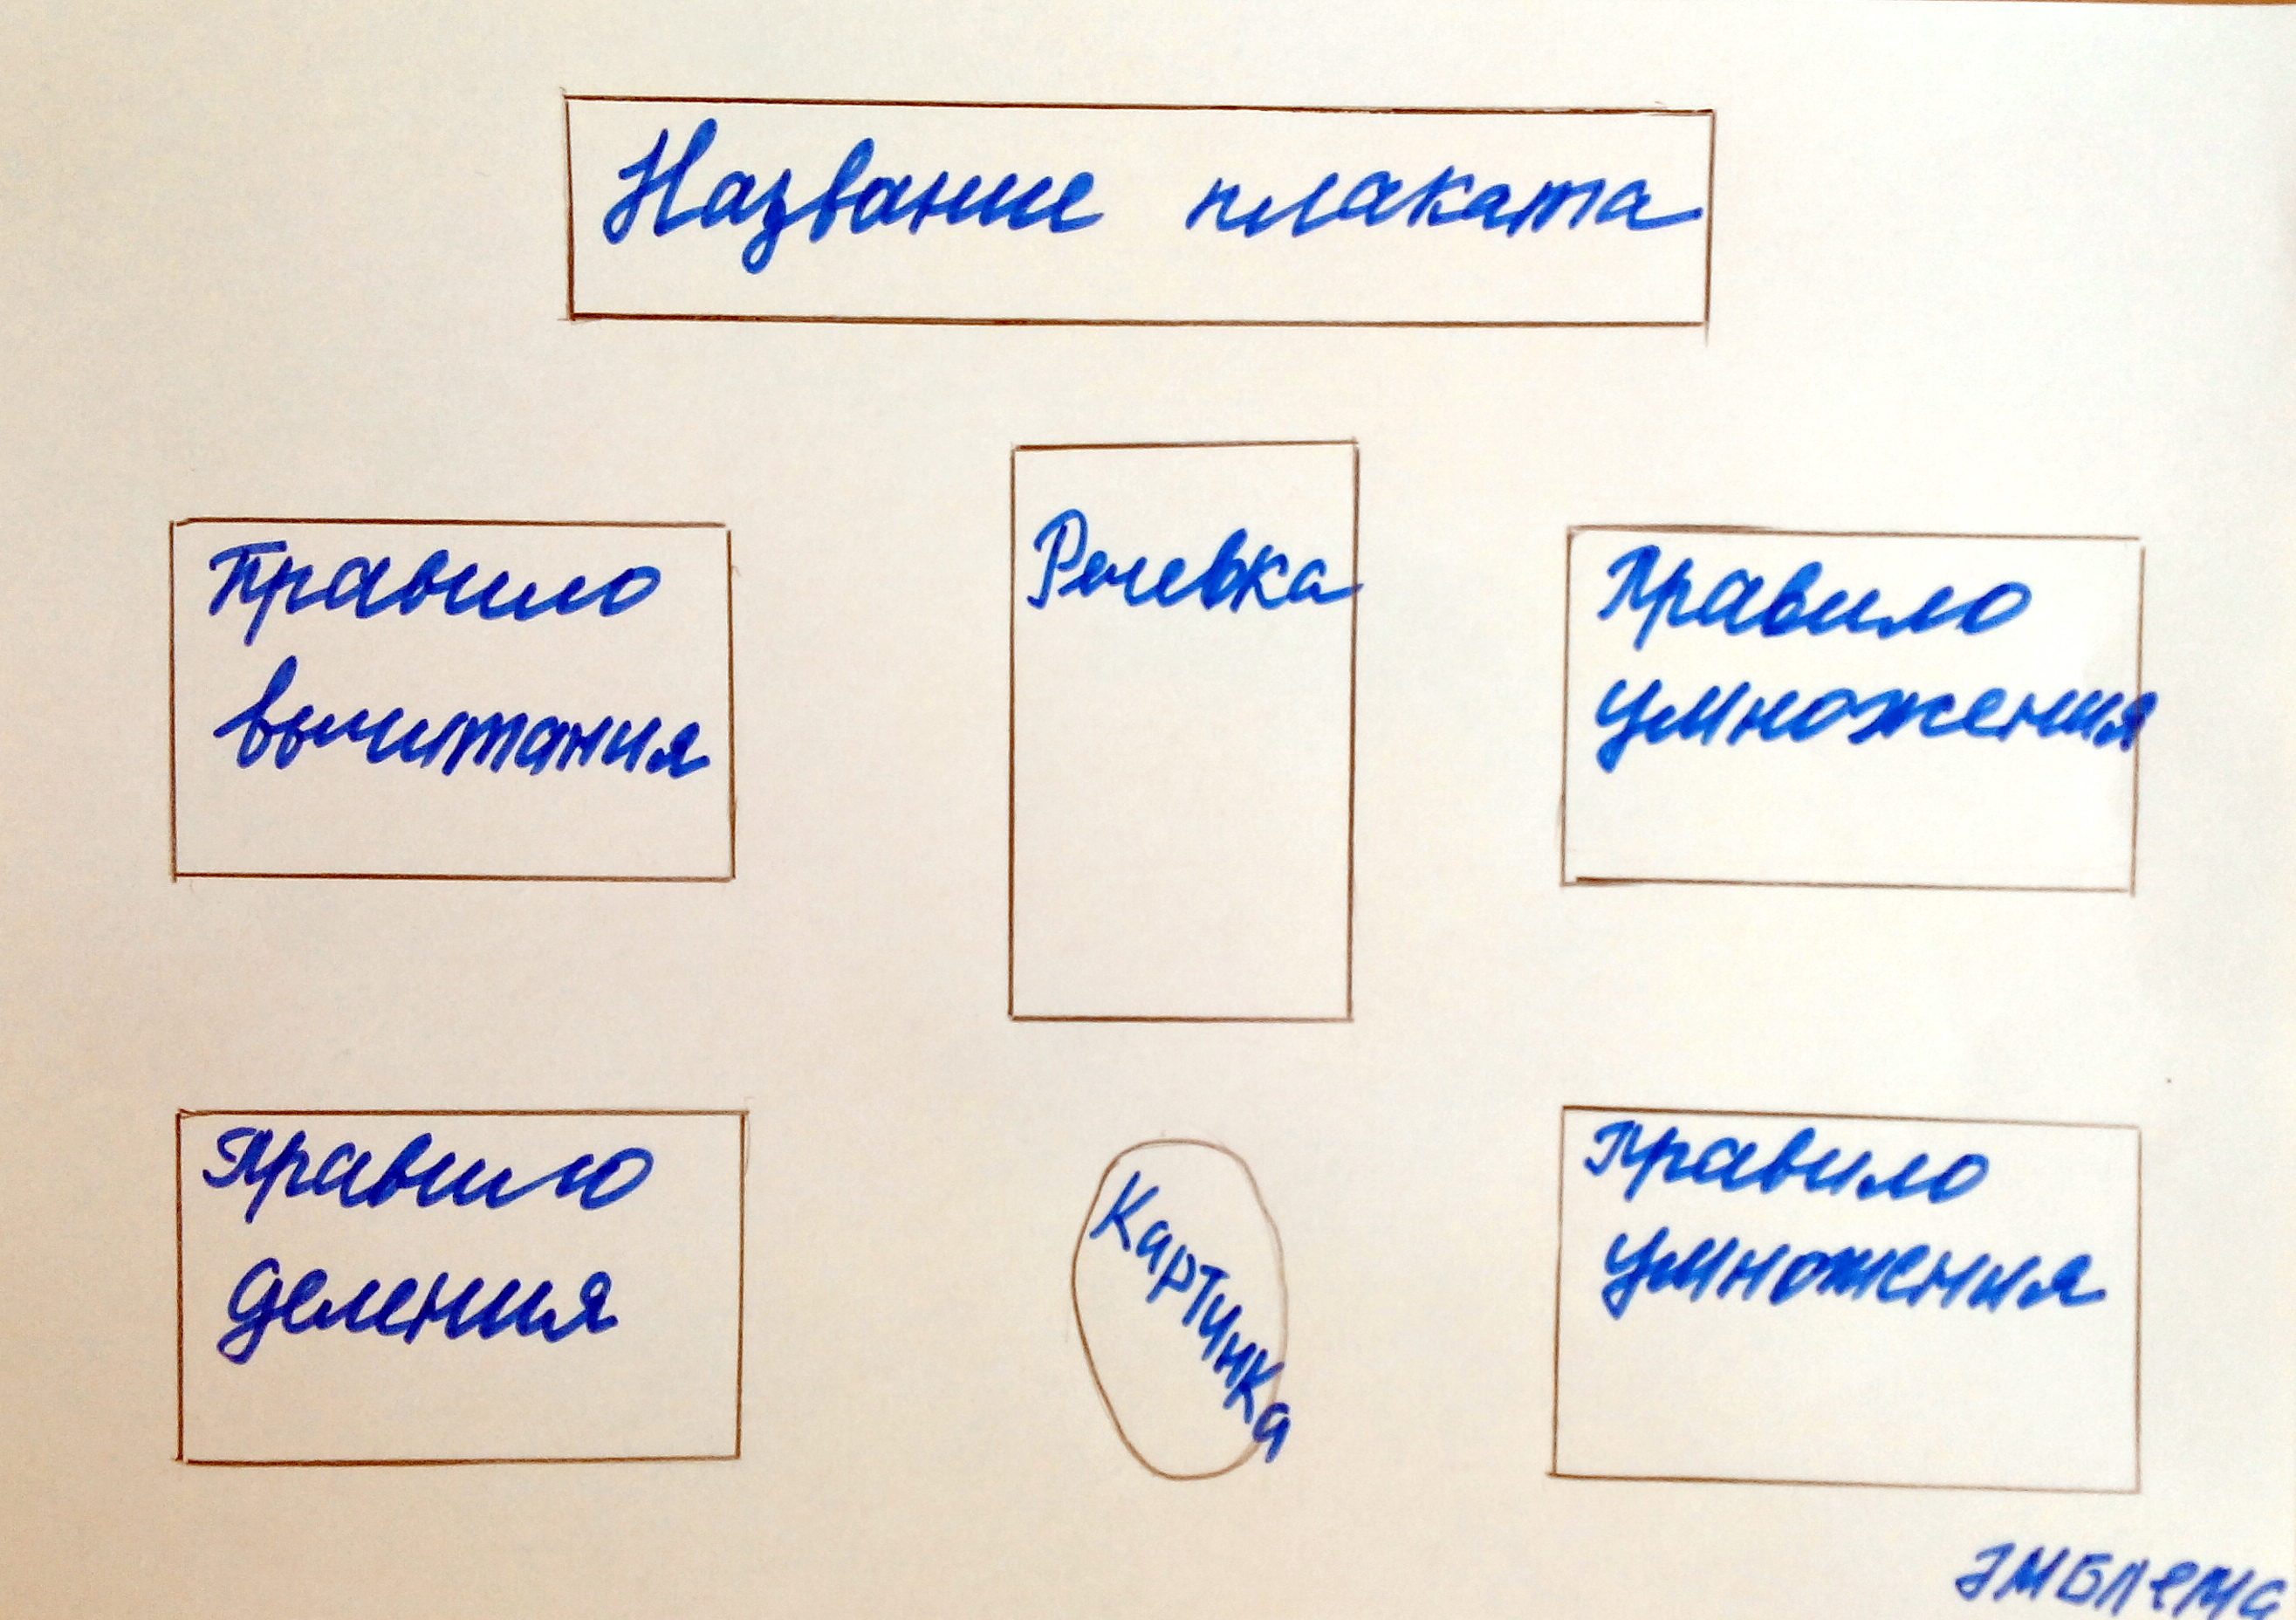 Название плаката
Речевка
Правило
вычитания
Правило
умножения
Правило
деления
Картинка
Правило
умножения
Эмблема